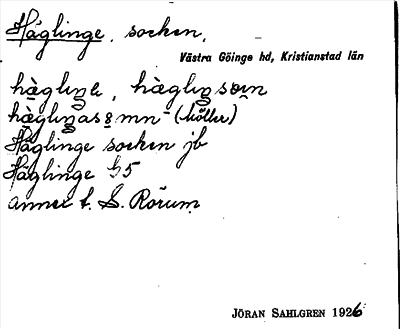 Häglinge, socken,
Västra Göinge hd, Kristianstad län
hägliŋe, hägliŋsoən
hägliŋas mn (höller)
Häglinge socken jb
Häglinge 95
annex t. S. Rörum
JÖRAN SAHLGREN 1926